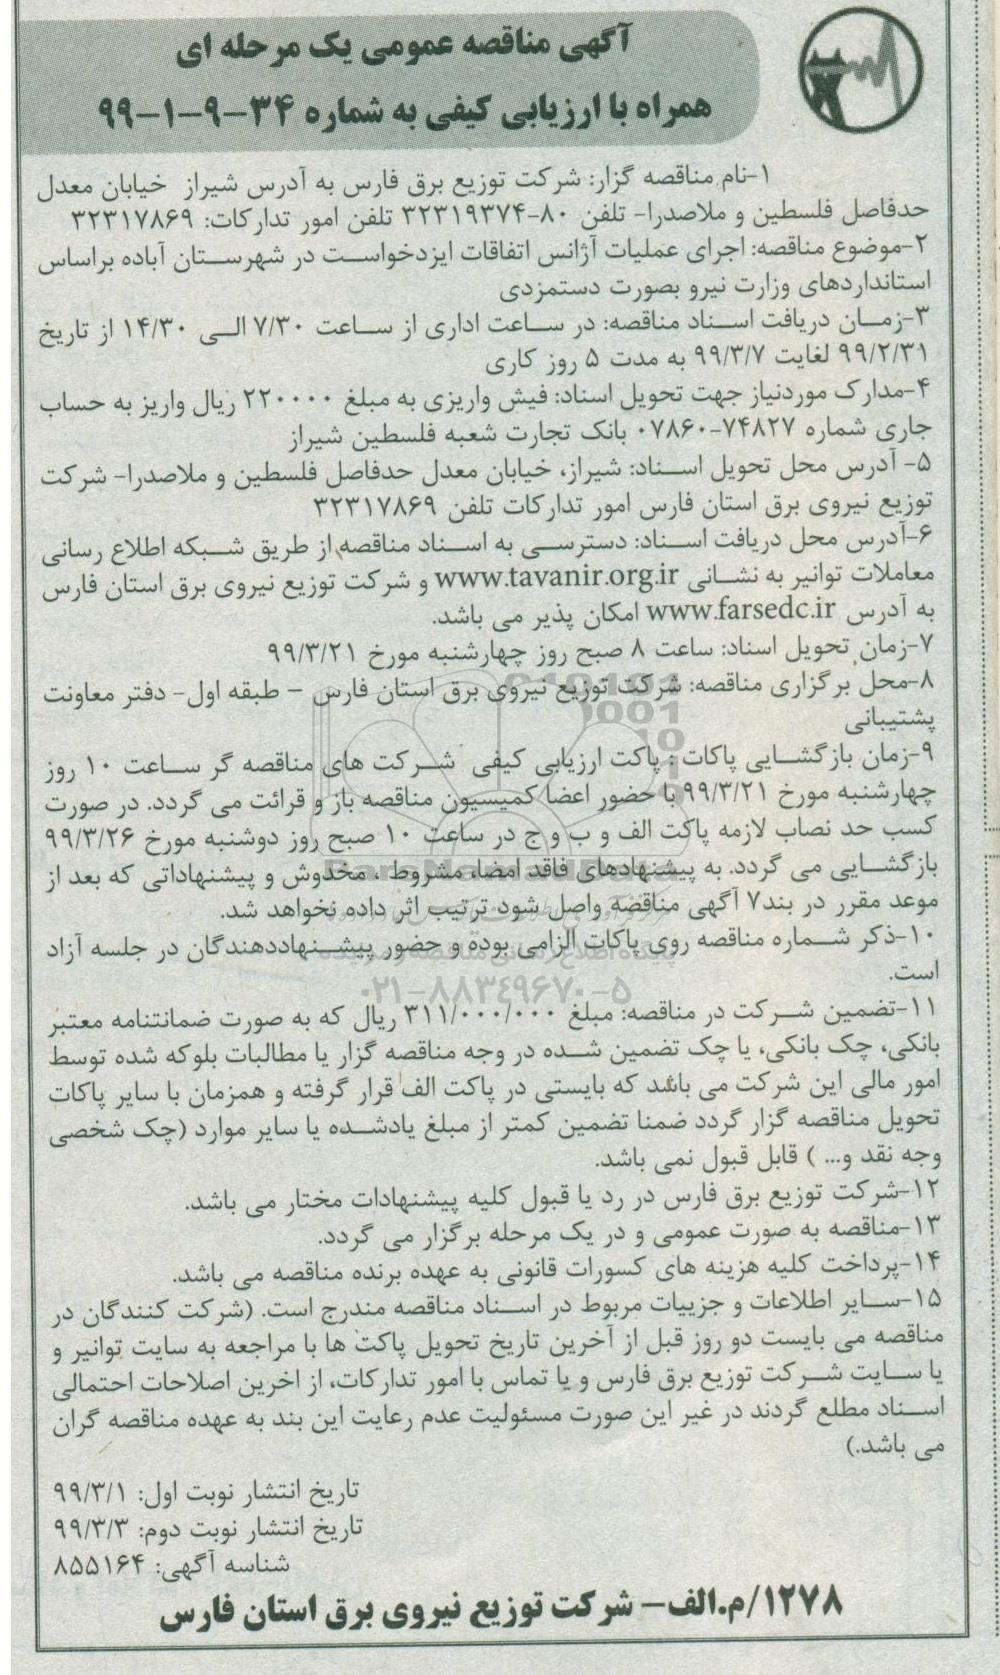 آگهی مناقصه عمومی یک مرحله ای
همراه با ارزیابی کیفی به شماره ۳۴-۹-۱-۹۹
۱-نام مناقصه گزار: شرکت توزیع برق فارس به آدرس شیراز خیابان معدل
حدفاصل فلسطین و ملاصدرا- تلفن ۸۰-۳۲۳۱۹۳۷۴ تلفن امور تدارکات: ۳۲۳۱۷۸۶۹
۲-موضوع مناقصه: اجرای عملیات آژانس اتفاقات ایزدخواست در شهرستان آباده براساس
استانداردهای وزارت نیرو بصورت دستمزدی
۳-زمان دریافت اسناد مناقصه: در ساعت اداری از ساعت ۷/۳۰ الی ۱۴/۳۰ از تاریخ
۹۹/۲/۳۱ لغایت ۹۹/۳/۷ به مدت ۵ روز کاری
۴-مدارک موردنیاز جهت تحویل اسناد: فیش واریزی به مبلغ ۲۲۰۰۰۰ ریال واریز به حساب
جاری شماره ۷۴۸۲۷-۰۷۸۶۰ بانک تجارت شعبه فلسطین شیراز
۵- آدرس محل تحویل اسناد: شیراز، خیابان معدل حدفاصل فلسطین و ملاصدرا- شرکت
توزیع نیروی برق استان فارس امور تدارکات تلفن ۳۲۳۱۷۸۶۹
۶-آدرس محل دریافت اسناد: دسترسی به اسناد مناقصه از طریق شبکه اطلاع رسانی
معاملات توانیر به نشانی www.tavanir.org.ir و شرکت توزیع نیروی برق استان فارس
به آدرس www.farsedc.ir امکان پذیر می باشد.
۷-زمان تحویل اسناد: ساعت ۸ صبح روز چهارشنبه مورخ ۹۹/۳/۲۱
۸-محل برگزاری مناقصه: شرکت توزیع نیروی برق استان فارس – طبقه اول- دفتر معاونت
پشتیبانی
۹-زمان بازگشایی پاکات : پاکت ارزیابی کیفی شرکت های مناقصه گر ساعت ۱۰ روز
چهارشنبه مورخ ۹۹/۳/۲۱ با حضور اعضا کمیسیون مناقصه باز و قرائت می گردد. در صورت
کسب حد نصاب لازمه پاکت الف و ب و ج در ساعت ۱۰ صبح روز دوشنبه مورخ ۹۹/۳/۲۶
بازگشایی می گردد. به پیشنهادهای فاقد امضا، مشروط ، مخدوش و پیشنهاداتی که بعد از
موعد مقرر در بند۷ آگهی مناقصه واصل شود ترتیب اثر داده نخواهد شد.
۱۰-ذکر شماره مناقصه روی پاکات الزامی بوده و حضور پیشنهاددهندگان در جلسه آزاد
است.
۰۲۱-۸۸۳۴۹۶۷۰-۵
۱۱-تضمین شرکت در مناقصه: مبلغ ۳۱۱/۰۰۰/۰۰۰ ریال که به صورت ضمانتنامه معتبر
بانکی، چک بانکی، یا چک تضمین شده در وجه مناقصه گزار یا مطالبات بلوکه شده توسط
امور مالی این شرکت می باشد که بایستی در پاکت الف قرار گرفته و همزمان با سایر پاکات
تحویل مناقصه گزار گردد ضمنا تضمین کمتر از مبلغ یادشده یا سایر موارد (چک شخصی
وجه نقد و... ) قابل قبول نمی باشد.
۱۲-شرکت توزیع برق فارس در رد یا قبول کلیه پیشنهادات مختار می باشد.
۱۳-مناقصه به صورت عمومی و در یک مرحله برگزار می گردد.
۱۴-پرداخت کلیه هزینه های کسورات قانونی به عهده برنده مناقصه می باشد.
۱۵-سایر اطلاعات و جزییات مربوط در اسناد مناقصه مندرج است. (شرکت کنندگان در
مناقصه می بایست دو روز قبل از آخرین تاریخ تحویل پاکت ها با مراجعه به سایت توانیر و
یا سایت شرکت توزیع برق فارس و یا تماس با امور تدارکات، از اخرین اصلاحات احتمالی
اسناد مطلع گردند در غیر این صورت مسئولیت عدم رعایت این بند به عهده مناقصه گران
می باشد.)
تاریخ انتشار نوبت اول: ۹۹/۳/۱
تاریخ انتشار نوبت دوم: ۹۹/۳/۳
شناسه آگهی: ۸۵۵۱۶۴
۱۲۷۸/م.الف- شرکت توزیع نیروی برق استان فارس